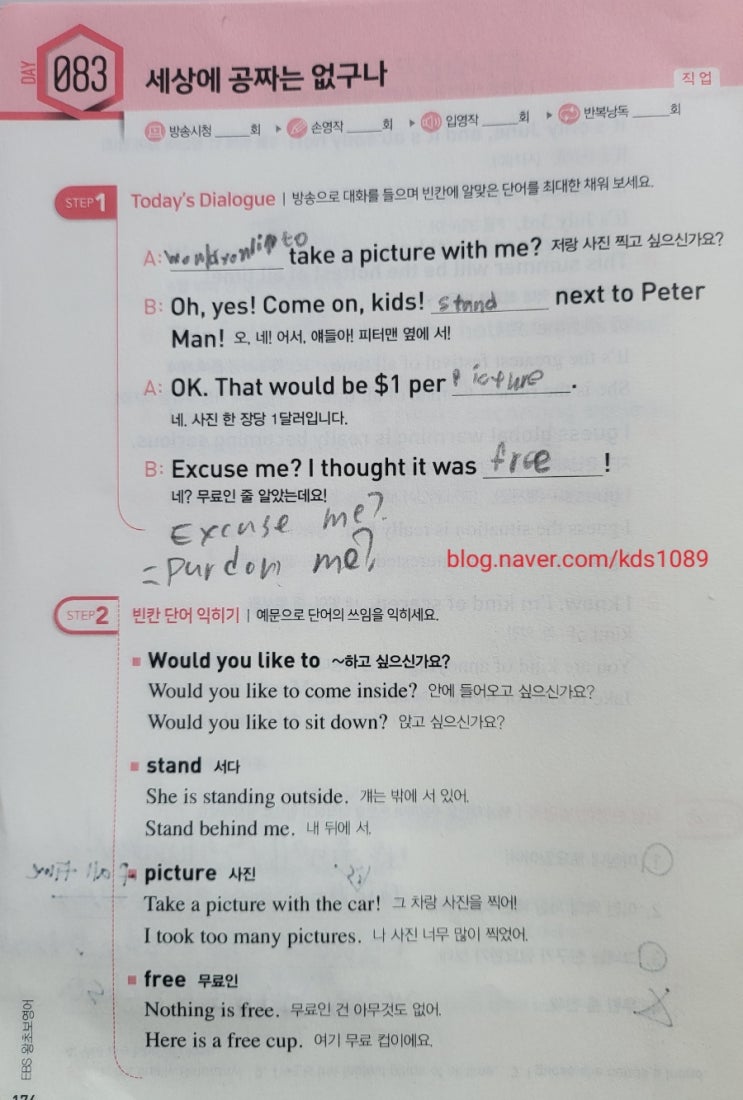 DAY 083 세상에 공짜는 없구나
직업
방송시청 ____회 ▶ 손영작 ____회 ▶ 입영작 ____회 ▶ 반복낭독 ____회
STEP 1 Today's Dialogue | 방송으로 대화를 들으며 빈칸에 알맞은 단어를 최대한 채워 보세요.
A: to take a picture with me? 저랑 사진 찍고 싶으신가요?
B: Oh, yes! Come on, kids! stand next to Peter
Man! 오, 네! 어서, 얘들아! 피터맨 옆에 서!
A: OK. That would be $1 per picture.
네. 사진 한 장당 1달러입니다.
B: Excuse me? I thought it was free!
네? 무료인 줄 알았는데요!
Excuse me?
= purdon me?
blog.naver.com/kds1089
STEP 2 빈칸 단어 익히기 | 예문으로 단어의 쓰임을 익히세요.
Would you like to ~하고 싶으신가요?
Would you like to come inside? 안에 들어오고 싶으신가요?
Would you like to sit down? 앉고 싶으신가요?
stand 서다
She is standing outside. 걔는 밖에 서 있어.
Stand behind me. 내 뒤에 서.
picture 사진
Take a picture with the car! 그 차랑 사진을 찍어!
I took too many pictures. 나 사진 너무 많이 찍었어.
free 무료인
Nothing is free. 무료인 건 아무것도 없어.
Here is a free cup. 여기 무료 컵이에요.
EBS 왕초보영어